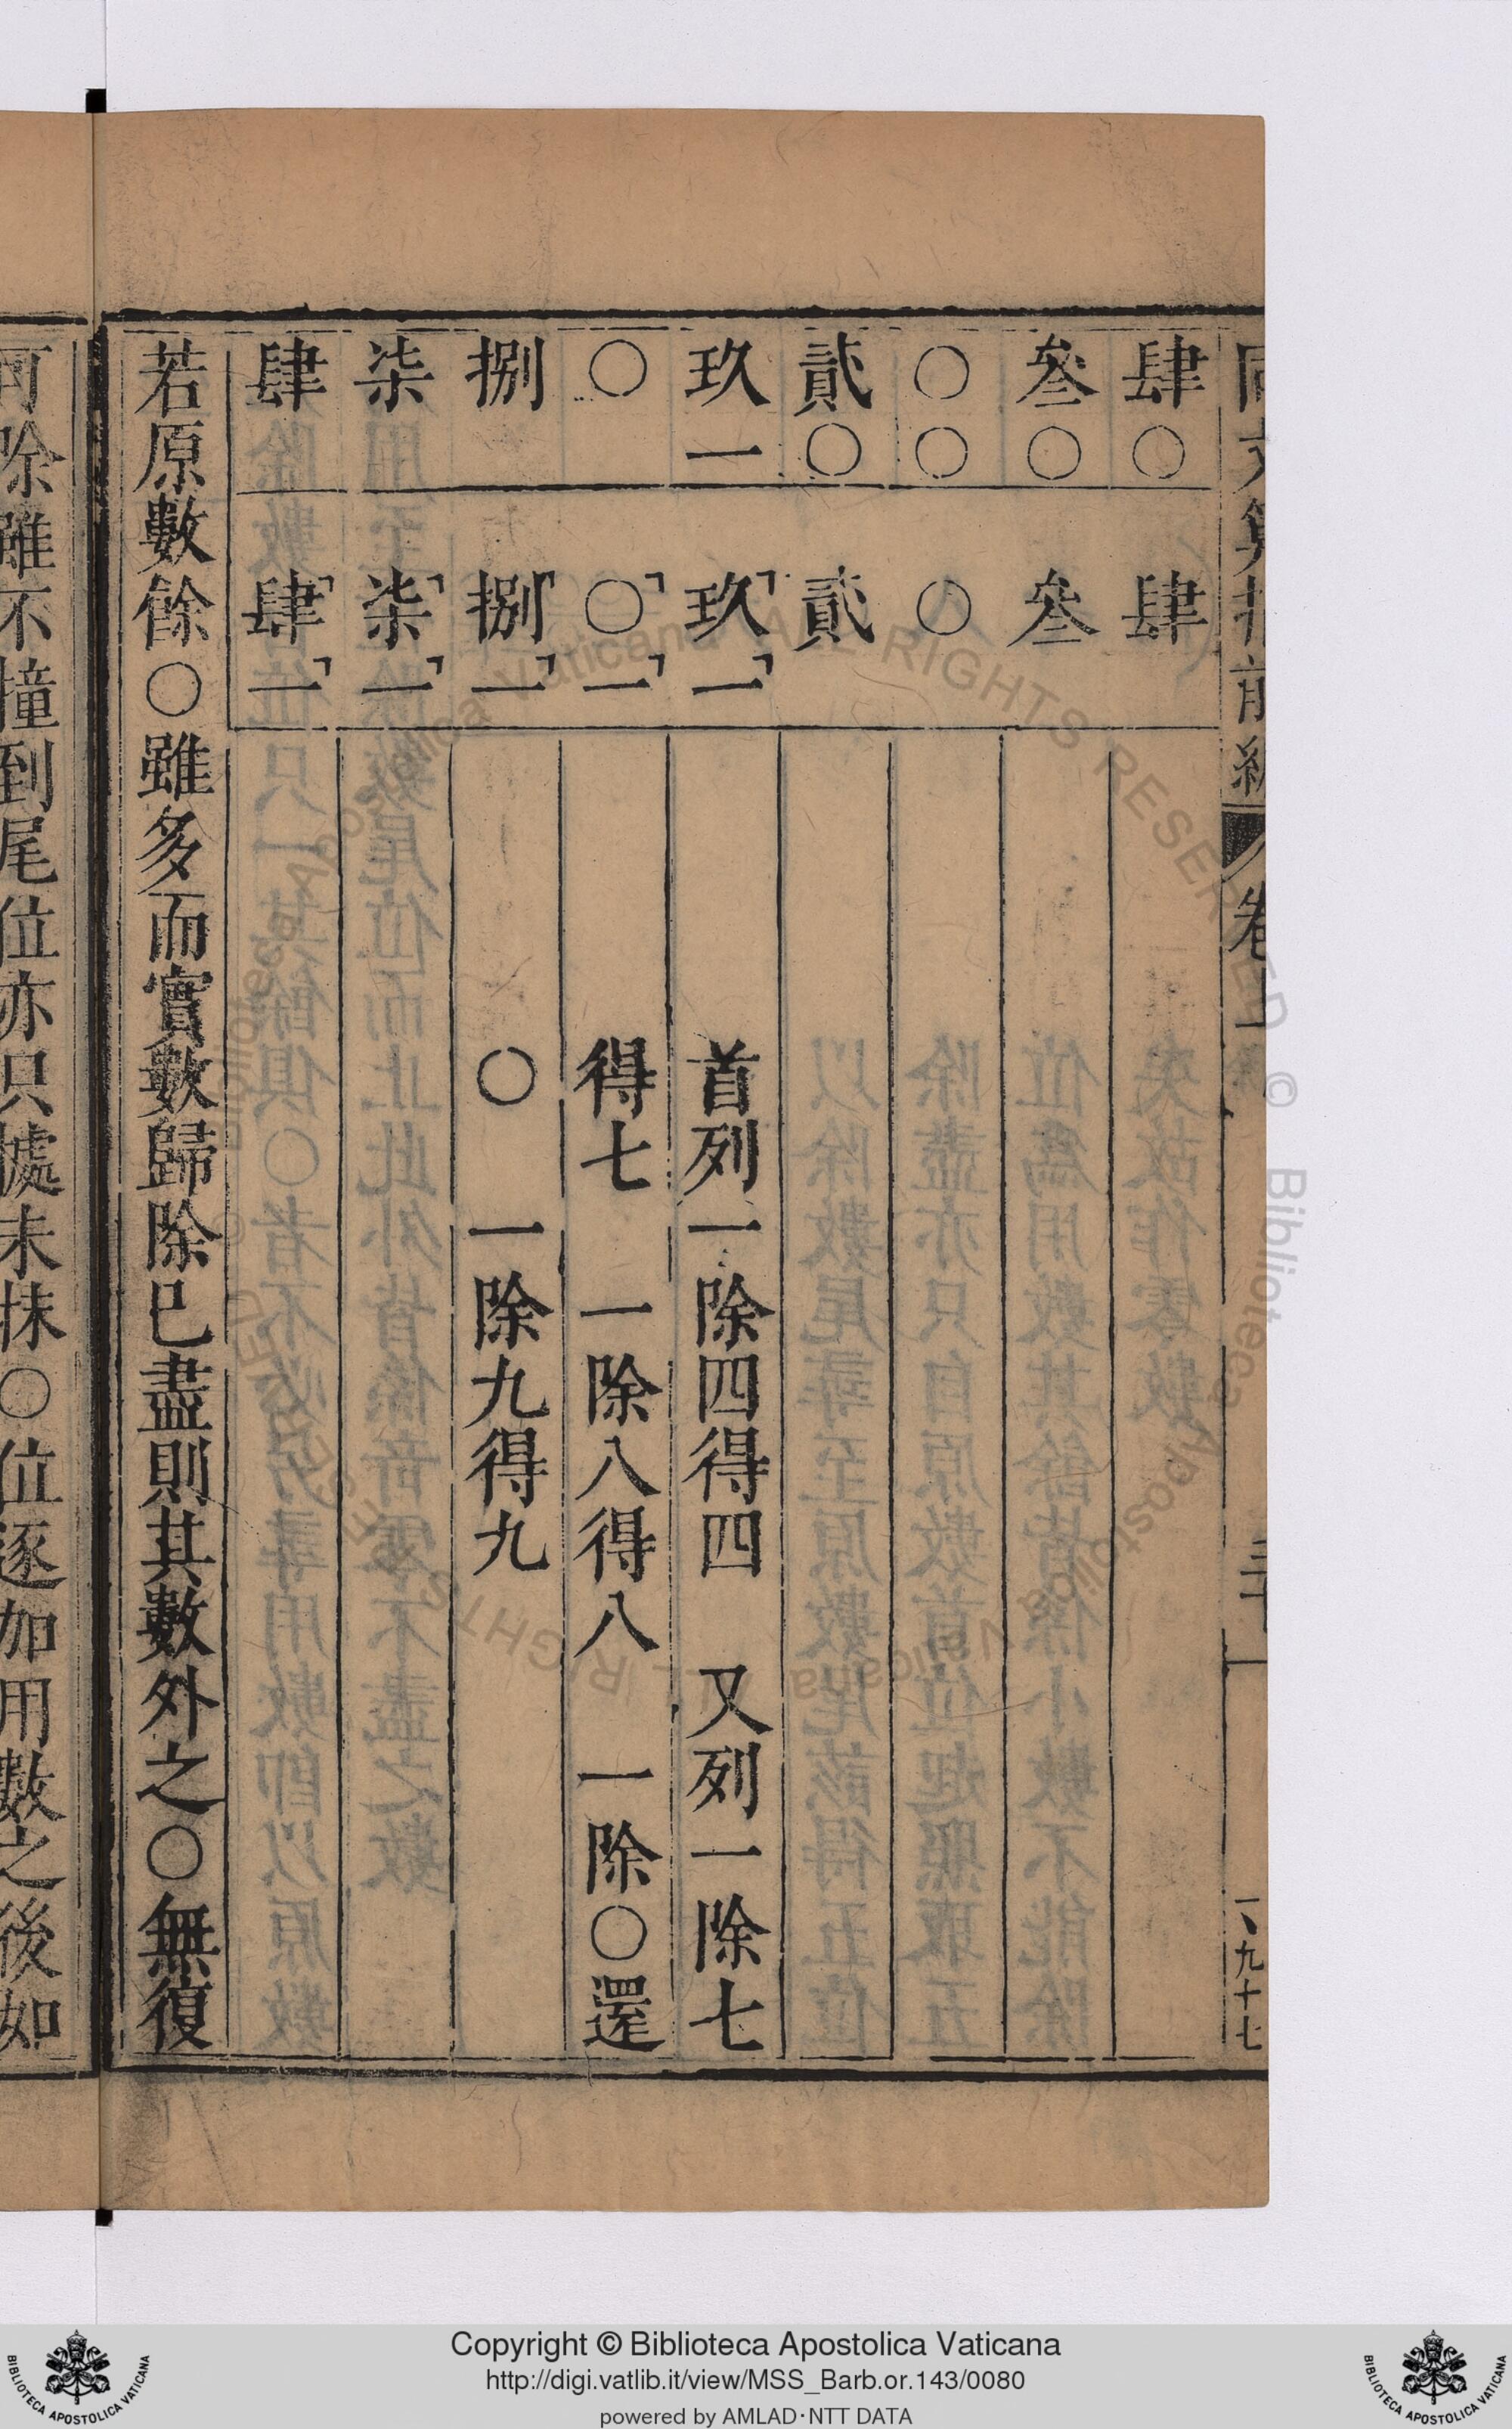 肆○　肆
叄○　叄
○○　○
貳○　貳
玖一　玖一　首列一除四得四　又列一除七
○　○一　得七　一除八得八　一除○還
捌　捌一　○　一除九得九
柒　柒一
肆　肆一
若原數餘○雖多而實數歸除已盡則其數外之○無復
可除雖不撞到尾位亦只據未抹○位逐加用數之後如
卷
一八九十七
Copyright © Biblioteca Apostolica Vaticana
http://digi.vatlib.it/view/MSS_Barb.or.143/0080
powered by AMLAD·NTT DATA
BIBLIOTECA APOSTOLICA VATICANA
BIBLIOTECA APOSTOLICA VATICANA